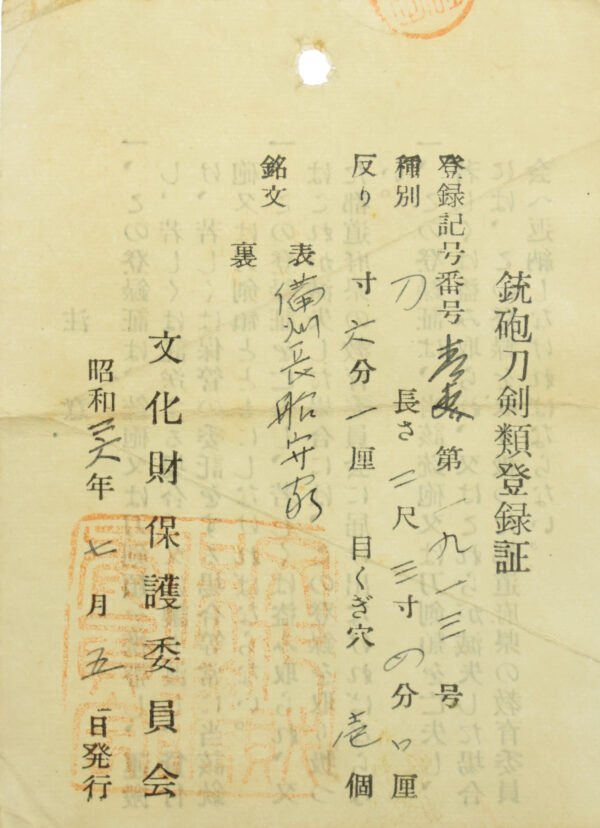 銃砲刀剣類登録証
登録記号番号 青森 第 一九一三 号
種別 刀 長さ 二尺 三寸 分 厘
反り 寸 六分 一厘 目くぎ穴 壱個
銘文 表 備州長船守家
裏
文化財保護委員会
昭和三六年七月五日発行